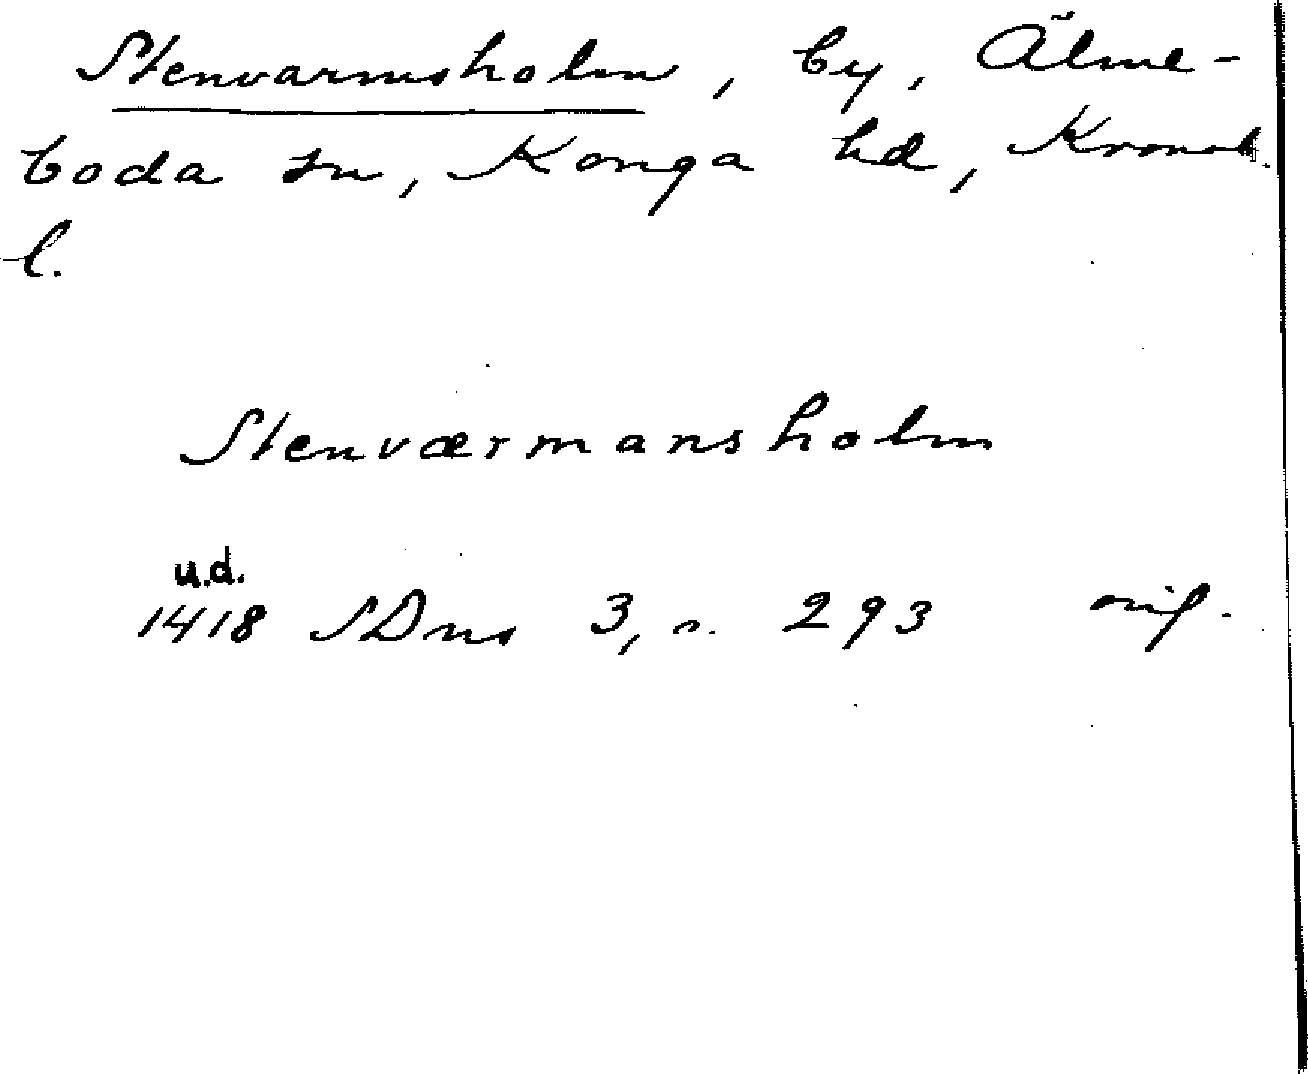 Stenvarmsholm, by, Älme-
boda sn, Konga hd, Kronob.
l.
Stenværmansholm
u.d.
1418 SDns 3, s. 293 orig.